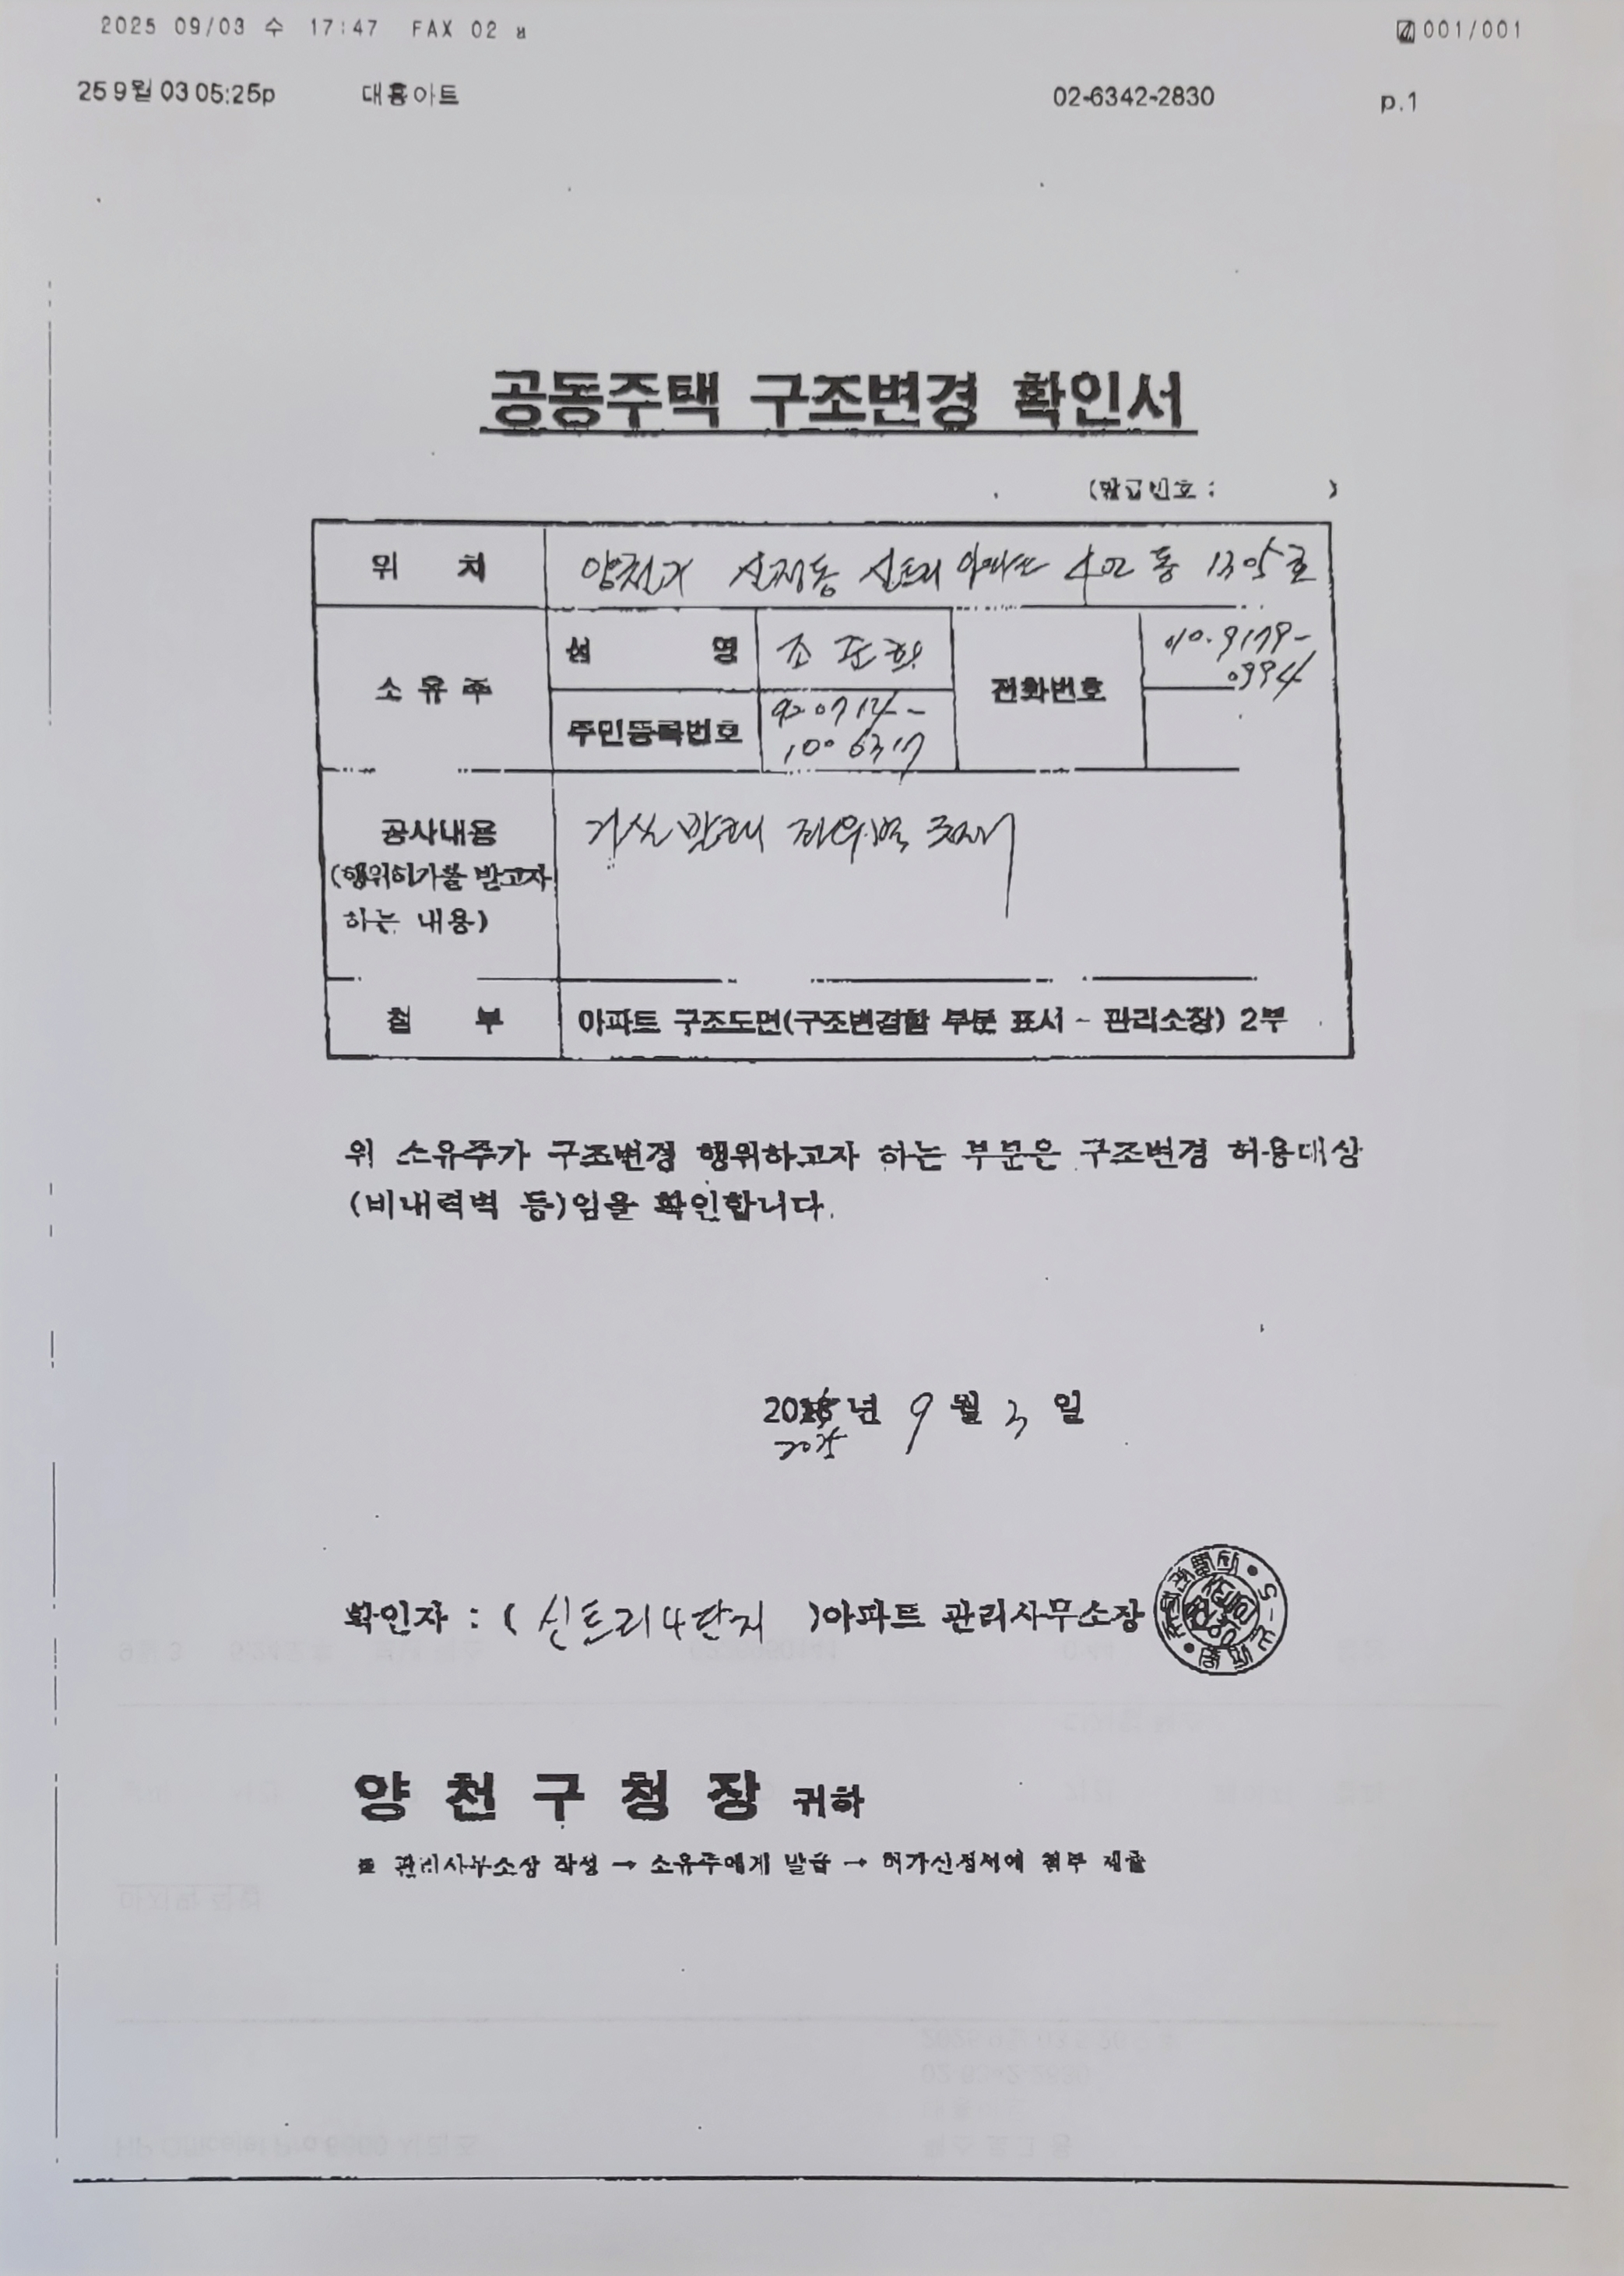 2025 09/03 수 17:47 FAX 02
001/001
25 9월 03 05:25p 대흥아트 02-6342-2830 p.1
공동주택 구조변경 확인서
(발급번호 : )
위 치 양천구 신정동 신트리 아파트 402 동 1305호
소유주 성 명 조준희 전화번호 010-9179-
0994
주민등록번호 920714-
1006317
공사내용
(행위허가를 받고자
하는 내용)
거실 발코니
첨 부 아파트 구조도면(구조변경할 부분 표시 - 관리소장) 2부
위 소유주가 구조변경 행위하고자 하는 부분은 구조변경 허용대상
(비내력벽 등)임을 확인합니다.
년 9 월 3 일
2025
확인자 : ( 신트리4단지 )아파트 관리사무소장
양 천 구 청 장 귀하
※ 관리사무소장 작성 → 소유주에게 발급 → 허가신청서에 첨부 제출